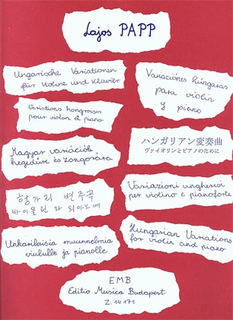 Lajos PAPP
Ungarische Variationen
für Violine und Klavier
Variaciónes húngaras
para violín
y piano
Variations hongroises
pour violon et piano
ハンガリアン変奏曲
ヴァイオリンとピアノのために
Magyar variációk
hegedűre és zongorára
Variazioni ungheresi
per violino e pianoforte
헝가리 변주곡
바이올린 과 피아노에
Unkarilaisia muunnelmia
viululle ja pianolle
Hungarian Variations
for violin and piano
EMB
Editio Musica Budapest
Z. 14 171